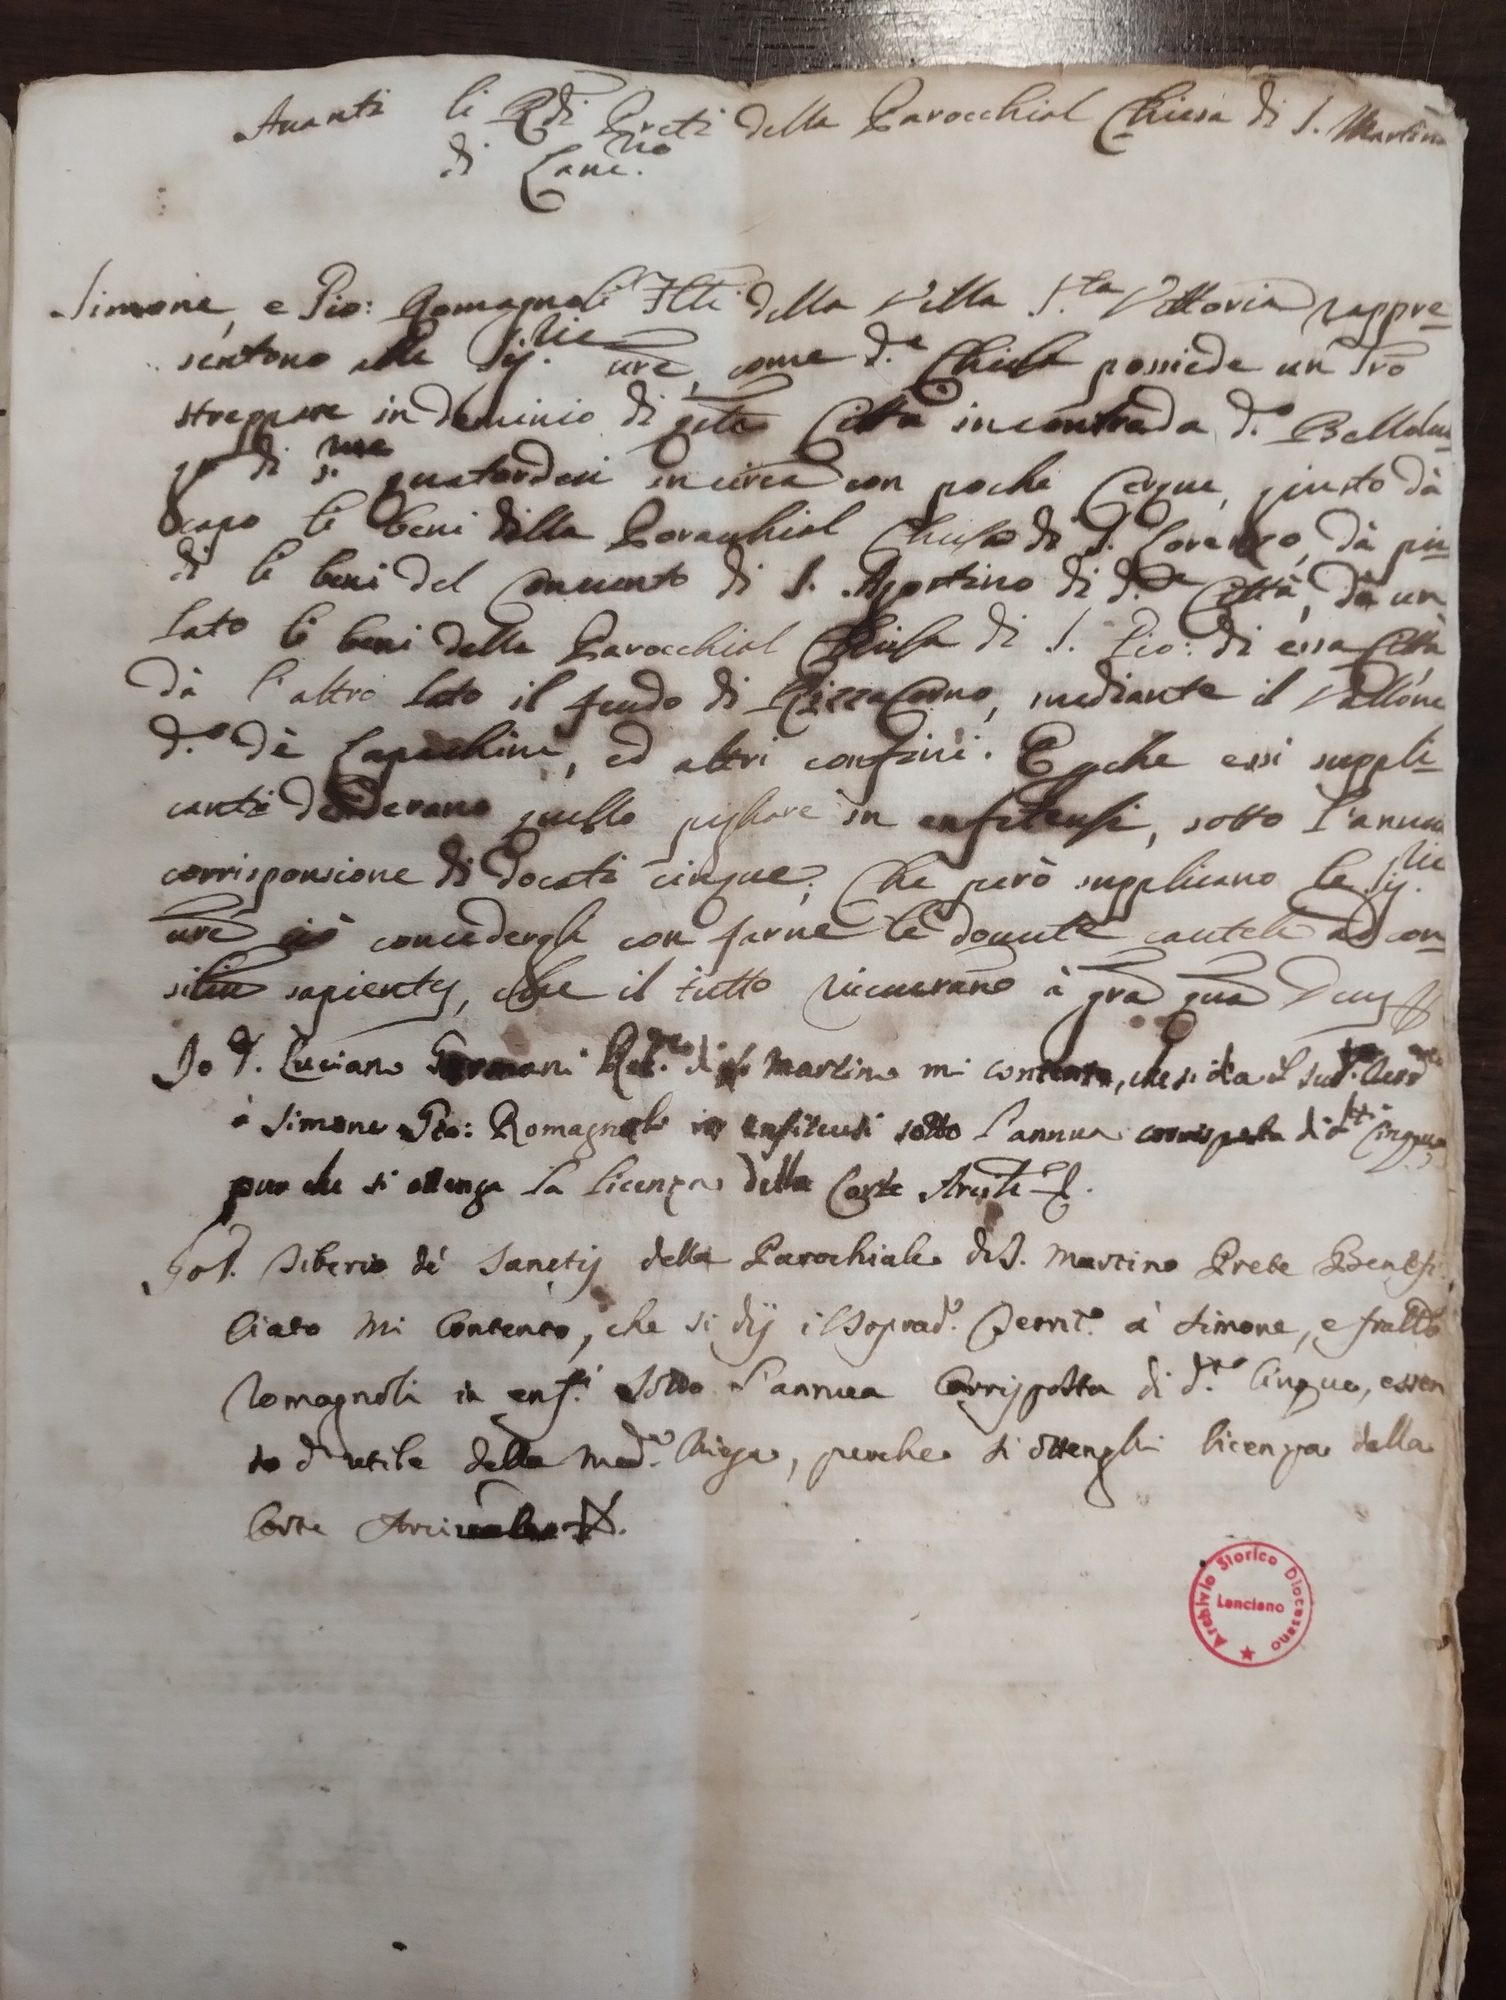 Avanti li R.di Preti della Parocchial Chiesa di S. Martino
di Lanc.no
Simone, e Gio: Romagnoli Flli della Villa S.ta Vittoria rappre
sentono alle Sig.rie vre, come d.a Chiesa possiede un Trro
streppare in dominio di qsta Città in contrada d.a Belloluo
go di quatordeci in circa con poche Cerque, giusto dà
capo li beni della Parocchial Chiesa di S. Lorenzo, dà pie
di li beni del Convento di S. Agostino di d.a Città, dà un
lato li beni della Parocchial Chiesa di S. Gio: di essa Città
dà l'altro lato il feudo di Rizzacorno, mediante il Vallone
d.o dè Capochini, ed altri confini. E perche essi suppli
canti desiderano quello pigliare in enfiteusi, sotto l'annua
corrisponsione di docati cinque; Che però supplicano le Sig.rie
vre ciò concedergli con farne le dovute cautele ad con
siliu sapientij, che il tutto riceverano à gra qua Deus
Io D. Luciano Germani Ret.re di S. Martino mi contento, che si dia il sud.to Terr.o
à Simone Gio: Romagnoli in enfiteusi sotto l'annua corrisposta di d.ti Cinque
pur che si ottenga la licenza della Corte Arcile
Io D. Liberio de Sanctij della Parochiale di S. Martino Prete Benefi
ciato mi Contento, che si dij il Soprad.o Territ.o à Simone, e fratello
Romagnoli in enf.si sotto l'annua Corrisposta di d.ti Cinque, essen
do d'utile della med.a Chiesa, purche si ottenghi licenza della
Corte
Archivio Storico Diocesano
Lanciano